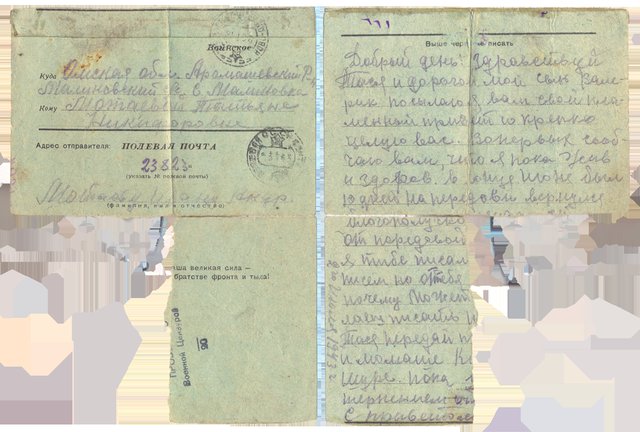 Воинское
Куда Омская обл Аромашевский Р-н
Малиновский с. Малиновка
Кому
Никифоровне
Адрес отправителя: ПОЛЕВАЯ ПОЧТА
23823
(указать № полевой почты)
(фамилия, имя и отчество)
ша великая сила –
братстве фронта и тыла!
Военной Цензурой
Выше черты не писать
Добрый день! Здравствуй
Тася и дорогой мой сын Вале
рик посылаю я вам свой пла
менный привет и крепко
целую вас. Во первых сооб
чаю вам, что я пока жив
и здоров. в конце июня был
10 дней на передовой вернулс
благополучно
от передовой
я тибе писал
писем но от тебя
почему Может
лаеш писать
Тася передай п
и мамаше К
Шуре. пока
С приветом